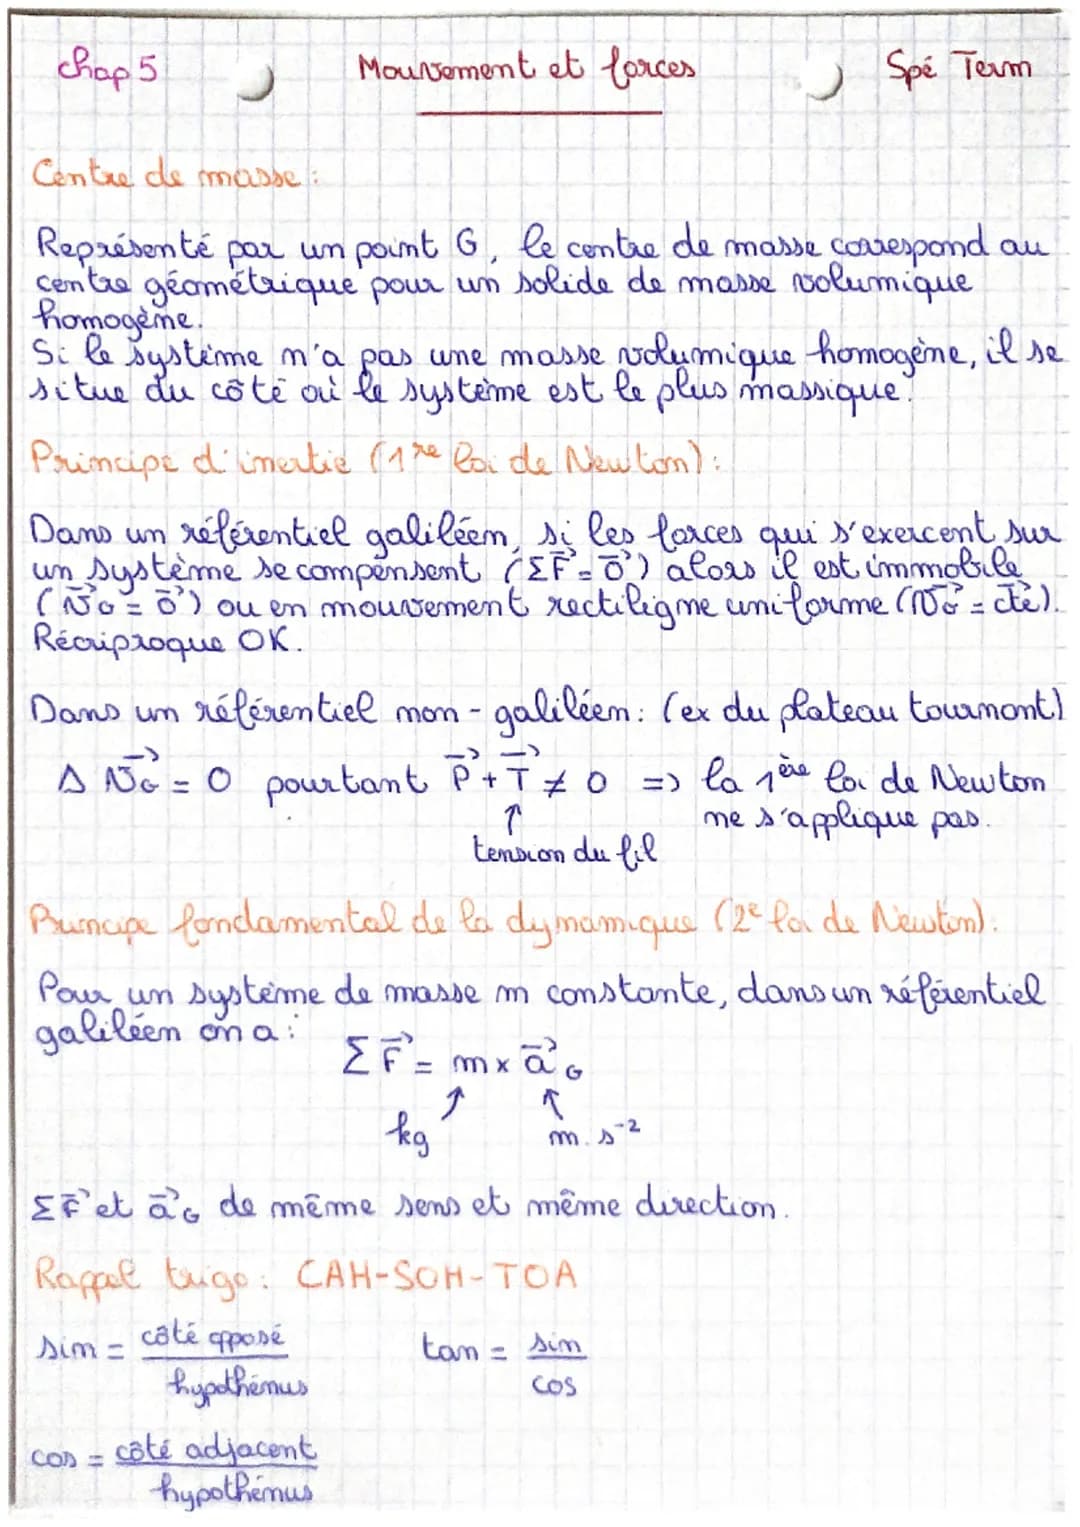 chap 5 Mouvement et forces Spé Term
Centre de masse :
Représenté par un point G, le centre de masse correspond au
centre géométrique pour un solide de masse volumique
homogène.
Si le système n'a pas une masse volumique homogène, il se
situe du côté où le système est le plus massique.
Principe d'inertie (1re loi de Newton) :
Dans un référentiel galiléen, si les forces qui s'exercent sur
un système se compensent (ΣF⃗ = 0⃗) alors il est immobile
(v⃗G = 0⃗) ou en mouvement rectiligne uniforme (v⃗G = c⃗te).
Réciproque OK.
Dans un référentiel non-galiléen : (ex du plateau tournant)
Δ v⃗G = 0 pourtant P⃗ + T⃗ ≠ 0 => la 1ère loi de Newton
↑ ne s'applique pas.
tension du fil
Principe fondamental de la dynamique (2e loi de Newton) :
Pour un système de masse m constante, dans un référentiel
galiléen on a :
ΣF⃗ = m × a⃗G
↑ ↑
kg m.s⁻²
ΣF⃗ et a⃗G de même sens et même direction.
Rappel trigo : CAH-SOH-TOA
sin = côté opposé / hypothénus tan = sin / cos
cos = côté adjacent / hypothénus